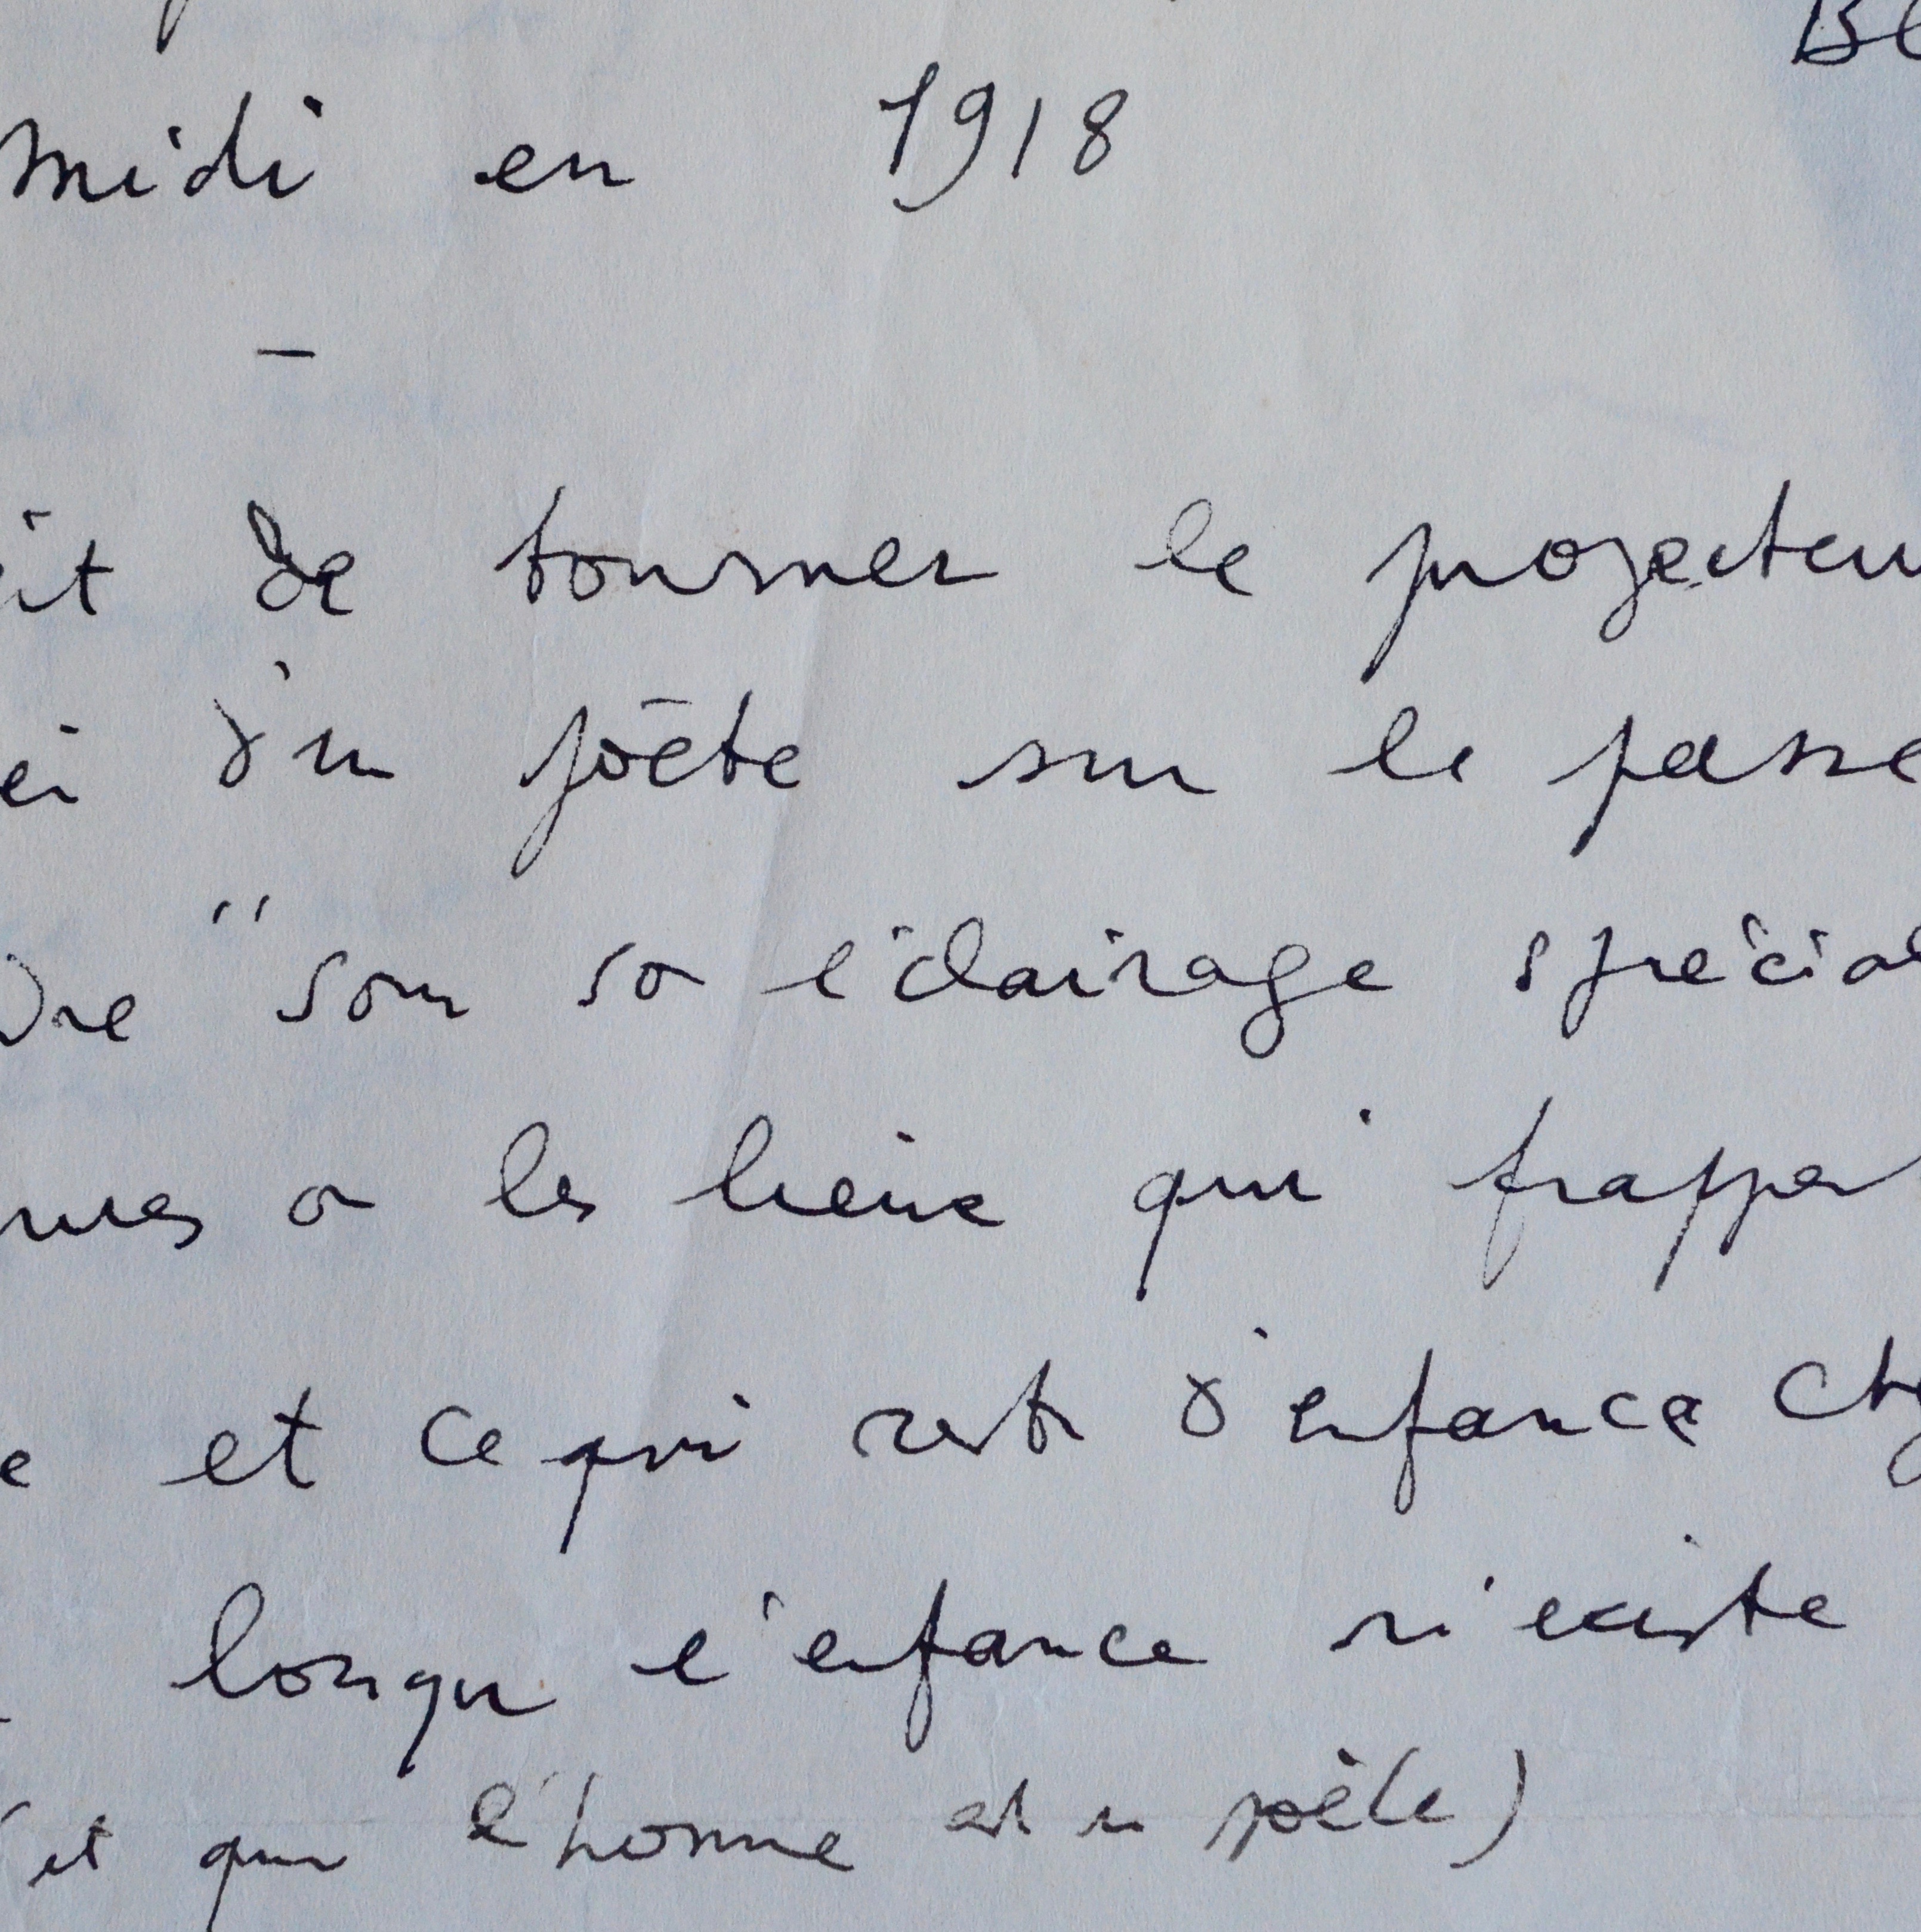 Bl
midi en 1918
—
it de tourner le projecteu
ei d'un poète sur le passé
dre "sous so éclairage spécial
mes ou les lieux qui frappen
e et ce qui reste d'enfance ch
lorsque l'enfance n'existe
et que l'homme est un poète)